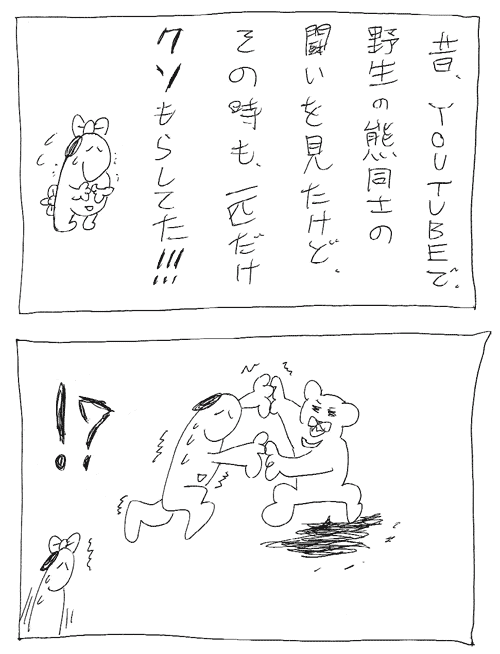 昔、YOUTUBEで、
野生の熊同士の
闘いを見たけど、
その時も、一匹だけ
クソもらしてた!!!
!?